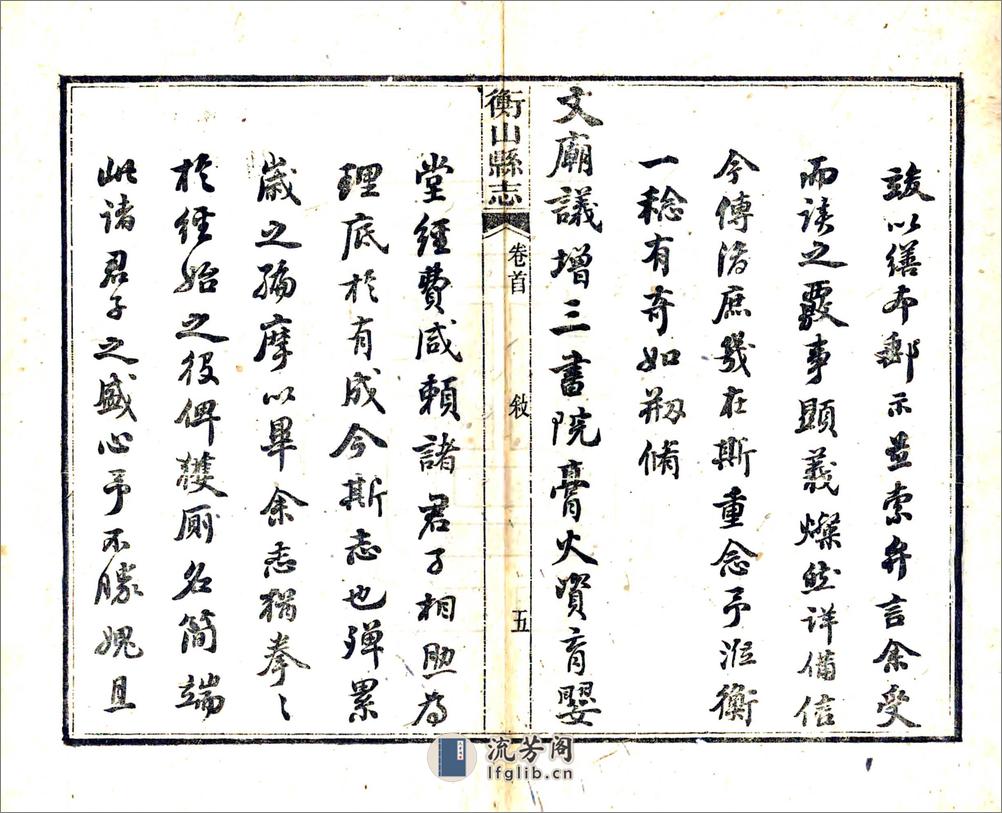 竣以繕本郵示並索弁言余受
而讀之覈事顯義燦然詳備信
今傳後庶幾在斯重念予涖衡
一稔有奇如刱脩
文廟議增三書院膏火資育嬰
衡山縣志
卷首
敘
五
堂經費咸賴諸君子相助為
理底於有成今斯志也殫累
歲之編摩以畢余志猶拳〻
於經始之役俾獲厠名簡端
此諸君子之盛心予不勝媿且
流芳阁
lfglib.cn